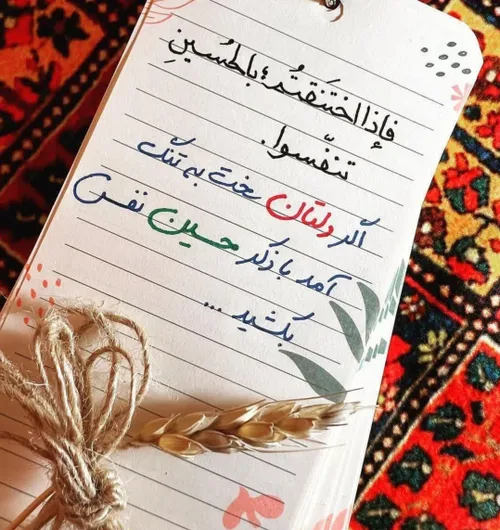 فإذا اختنقتُم؛ باطسینِ
تنفّسوا.
اگر دلتان سخت به تنگ
آمد با ذکر حسین نفس
بکشید...